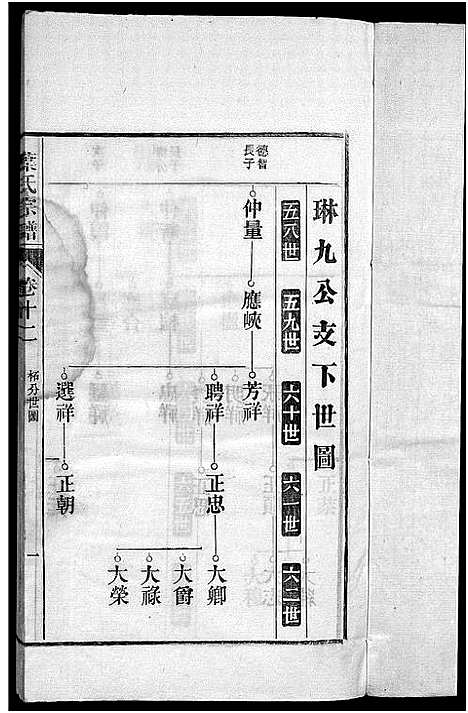 琳九公支下世圖
五八世
五九世
六十世
六一世
六二世
德智
長子
仲量
應峽
芳祥
聘祥
正忠
大卿
大爵
大祿
大榮
選祥
正朝
葉氏宗譜
卷十二
一